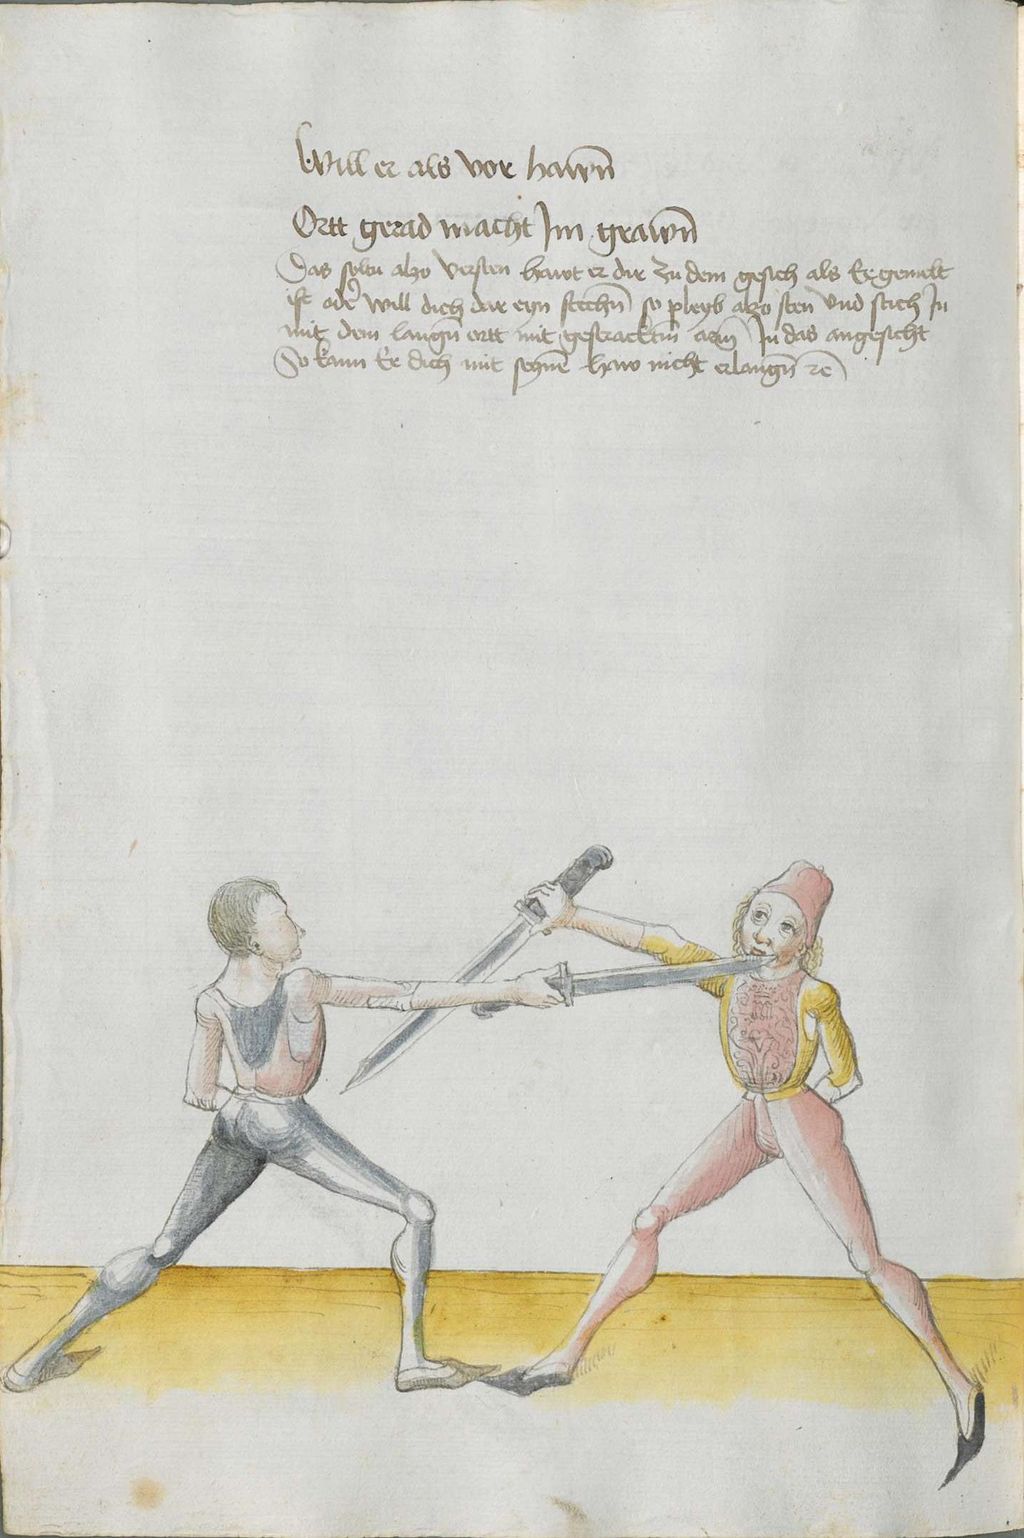 Will er als vor hawn̄
Ortt gerad macht Im grawn̄
Das soltu also versten hawt er dir zu dem gesich als Er gemelt
ist oder will dich dar eyn stechn̄ so pleyb also sten vnd stich In
mit dem langn̄ ortt mit gestracktm̄ arm̄ In das angesicht
So kann Er dich mit seynē haw nicht erlangn̄ rē